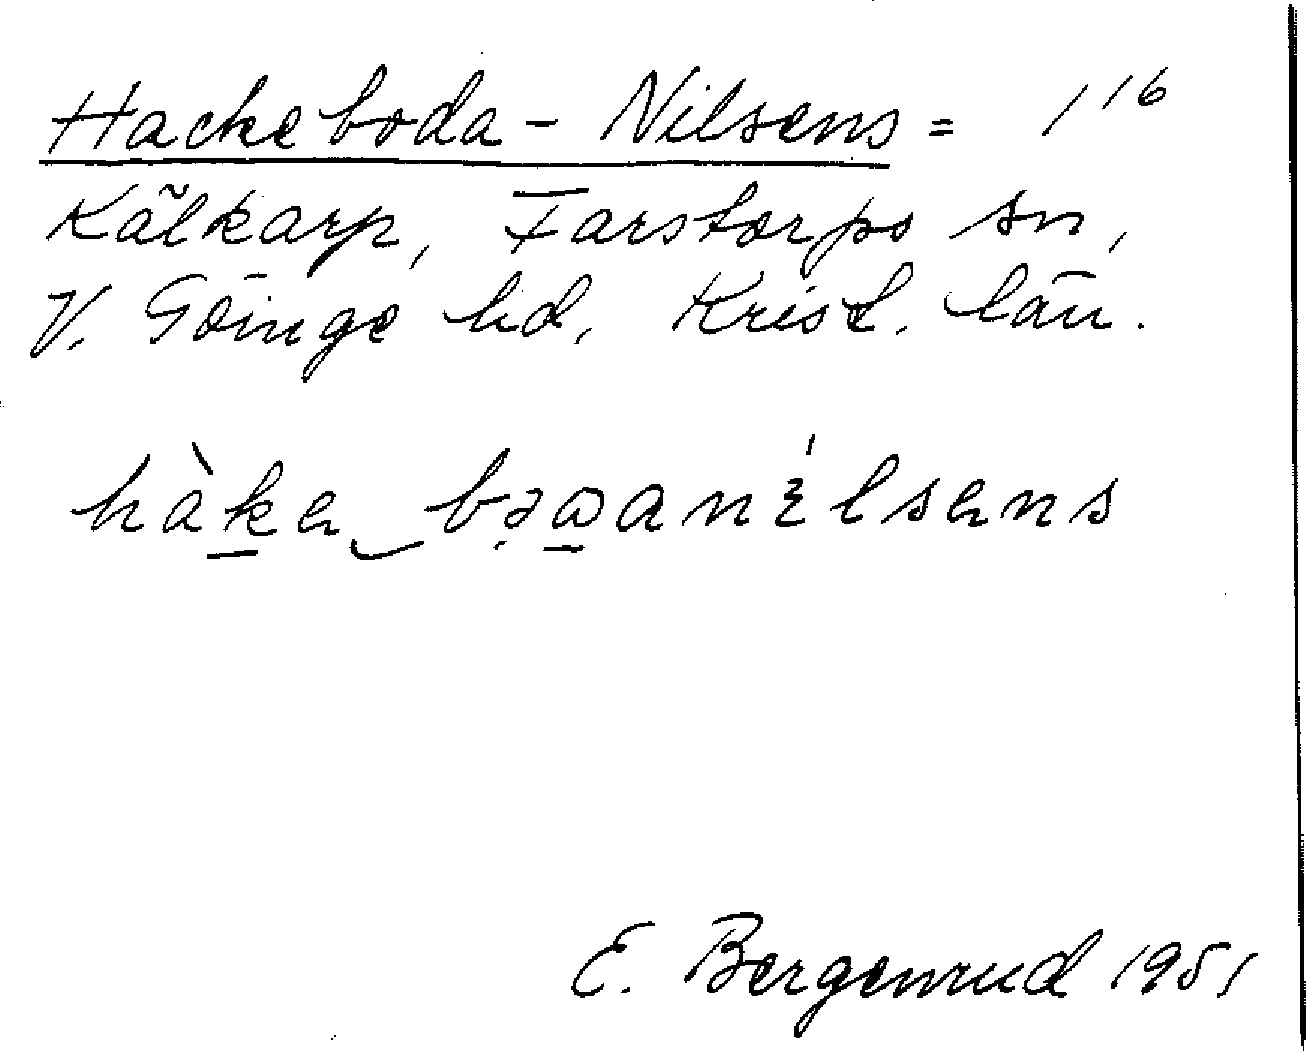 Hackeboda-Nilsens = 1 16
Kålkarp, Farstorps sn,
V. Göinge hd, Krist. län.
E. Bergenrud 1951